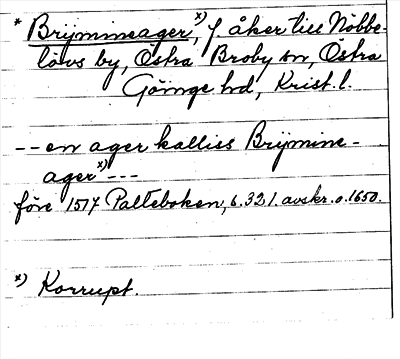 * Brÿmineager,ˣ⁾ f. åker till Nöbbe-
lövs by, Östra Broby sn, Östra
Göinge hd, Krist. l.
-- en ager kalliss Brÿmine-
agerˣ⁾ ---
före 1517 Palteboken, s. 321. avskr. o. 1650.
ˣ⁾ Korrupt.